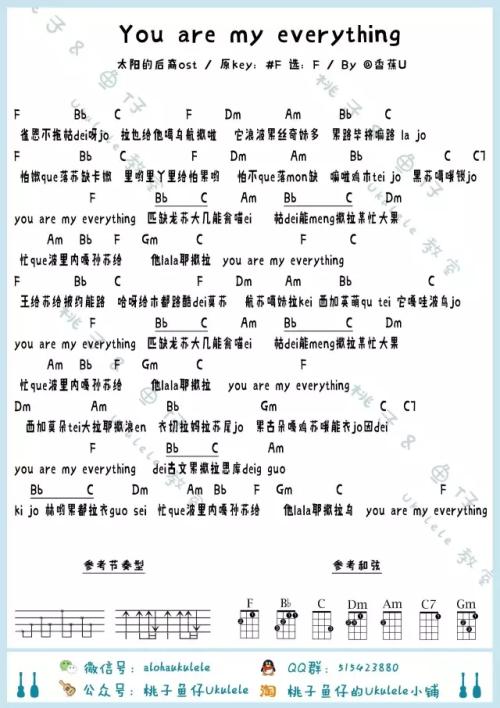 You are my everything
太阳的后裔ost / 原key: #F 选: F / By @香蕉U
F Bb C F Dm Am Bb C
雀恩不拖帖dei呀jo 拉也给他吗乌航撒啦 它浪波果丝奇哈多 果路毕将嘛路 la jo
F Bb C F Dm Am Bb C C7
怕嫩que落苏缺卡嫩 里哟里丫里给怕果哟 怕不que落mon缺 嘛啦鸡木tei jo 黑苏哦哦锁jo
F Bb C F Bb C
you are my everything 匹缺龙苏大几能食喵ei 帖dei能meng撒拉某忙大果
Am Bb F Gm C F
忙que波里内嘎孙苏给 他lala耶撒拉 you are my everything
F Bb C F Dm Am Bb C
王给苏给披约能路 哈呀给木都路酷dei莫苏 航苏哦哈拉kei 西加英萌qu tei 它嘎哇波乌jo
F Bb C F Bb C
you are my everything 匹缺龙苏大几能食喵ei 帖dei能meng撒拉某忙大果
Am Bb F Gm C F
忙que波里内嘎孙苏给 他lala耶撒拉 you are my everything
Dm Am Bb F Gm C C7
西加莫朵tei大拉耶撒浪en 衣切拉妈拉苏尾jo 果古朵嘎鸡苏哦能衣jo因dei
F Bb C F
you are my everything dei古文果撒拉思库deig guo
Bb C Dm Am Bb F Gm C F
ki jo 林哟果都拉衣guo sei 忙que波里内嘎孙苏给 他lala耶撒拉乌 you are my everything
参考节奏型 参考和弦
F Bb C Dm Am C7 Gm
微信号: alohaukulele QQ群: 515423880
公众号: 桃子鱼仔Ukulele 淘 桃子鱼仔的Ukulele小铺
桃子&鱼仔
Ukulele教室